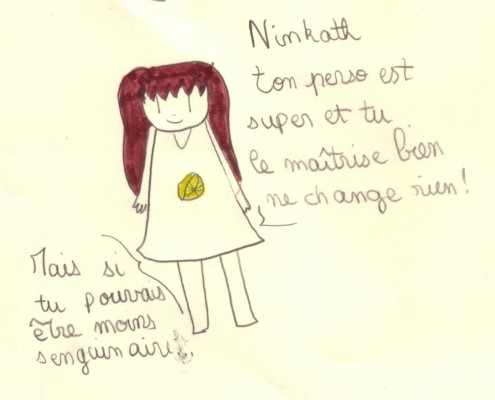 Ninkath
ton perso est
super et tu
le maîtrise bien
ne change rien!
Mais si
tu pouvais
être moins
senguinaire.